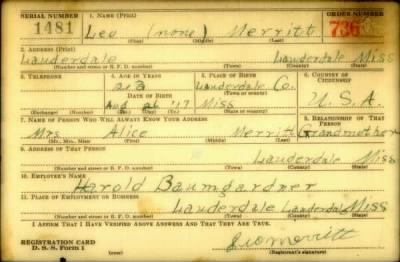 SERIAL NUMBER 1. NAME (Print) ORDER NUMBER
1481 Leo (none) Merritt 736
(First) (Middle) (Last)
2. ADDRESS (Print)
Lauderdale Lauderdale Miss
(Number and street or R. F. D. number) (Town) (County) (State)
3. TELEPHONE 4. AGE IN YEARS 5. PLACE OF BIRTH 6. COUNTRY OF CITIZENSHIP
23 Lauderdale Co.
DATE OF BIRTH (Town or county)
Aug 26 '17 Miss U.S.A.
(Exchange) (Number) (Mo.) (Day) (Yr.) (State or country)
7. NAME OF PERSON WHO WILL ALWAYS KNOW YOUR ADDRESS 8. RELATIONSHIP OF THAT PERSON
Mrs Alice Merritt Grandmother
(Mr., Mrs., Miss) (First) (Middle) (Last)
9. ADDRESS OF THAT PERSON
Lauderdale Miss
(Number and street or R. F. D. number) (Town) (County) (State)
10. EMPLOYER'S NAME
Harold Baumgardner
11. PLACE OF EMPLOYMENT OR BUSINESS
Lauderdale Lauderdale Miss
(Number and street or R. F. D. number) (Town) (County) (State)
I AFFIRM THAT I HAVE VERIFIED ABOVE ANSWERS AND THAT THEY ARE TRUE.
REGISTRATION CARD
D. S. S. Form 1
Leo Merritt
(Registrant's signature)